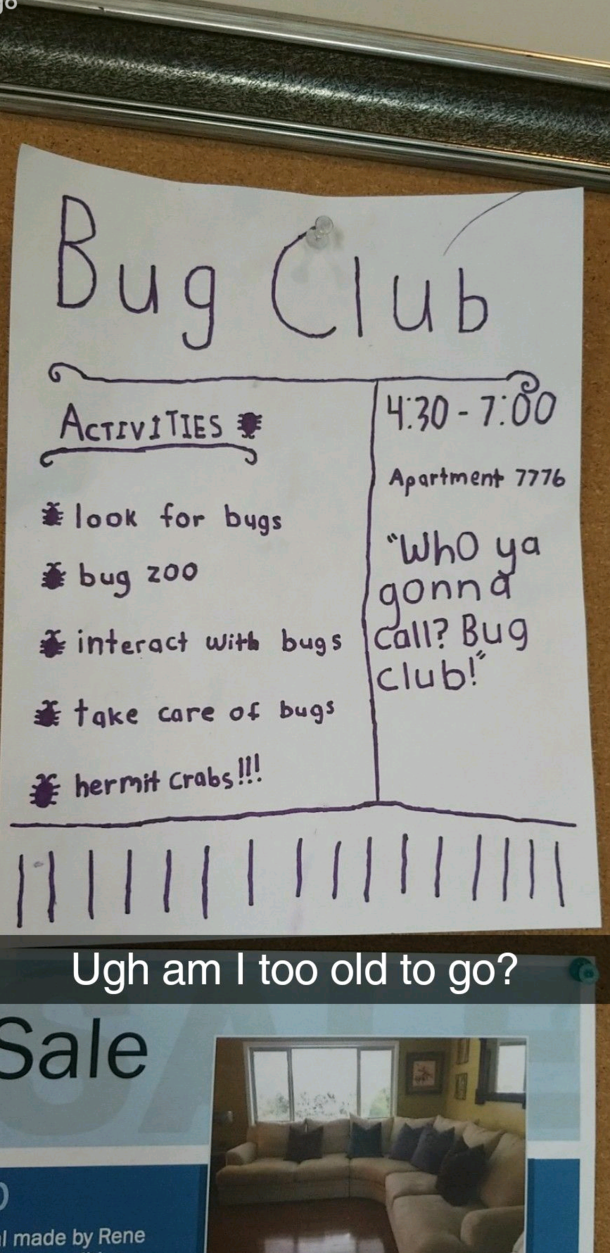 Bug Club
ACTIVITIES
look for bugs
bug zoo
interact with bugs
take care of bugs
hermit crabs!!!
4:30 - 7:00
Apartment 7776
"WhO ya
gonna
call? Bug
club!"
Ugh am I too old to go?
Sale
made by Rene